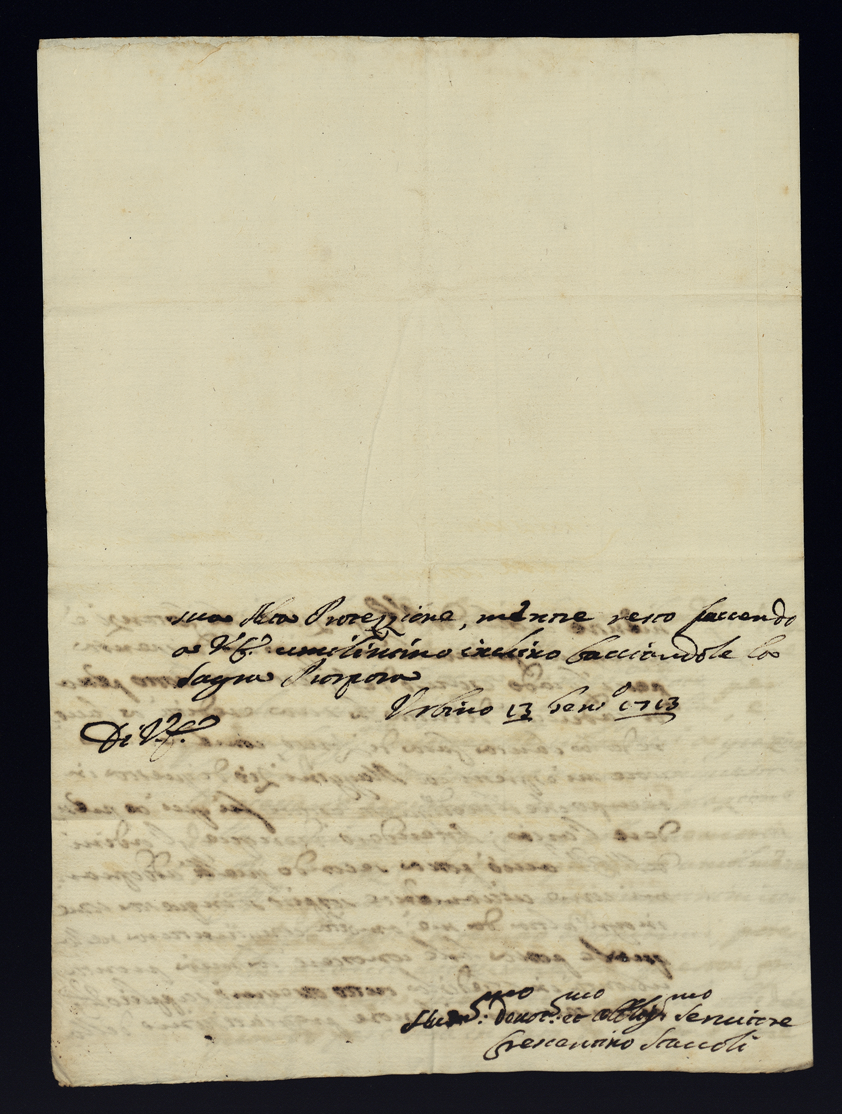 sua Alta Protezzione, mentre resto faccendo
a V. E. umiliss.mo inchino bacciandole la
Sagra Porpora
Urbino 13 Gen.o 1713
Di V. E.
Devot.mo et Obblig.mo Servitore
Crescentino Staccoli